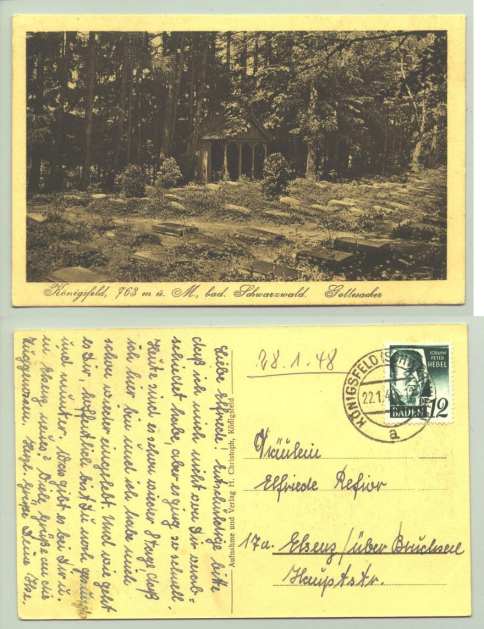 Königsfeld, 763 m ü. M., bad. Schwarzwald. Gottesacker
Liebe Elfriede! Entschuldige bitte
daß ich mich nicht von Dir verab-
schiedet habe, aber es ging so schnell.
Heute sind es schon wieder 8 Tage daß
ich hier bin und ich habe mich
schon wieder eingelebt. Und wie geht
es Dir, hoffentlich bist Du noch gesund
und munter. Was gibt es bei Dir u.
in Elsenz neues? Viele Grüße an die
Deine Ilse.
Aufnahme und Verlag H. Christoph, Königsfeld
28.1.48
KÖNIGSFELD
22.1.4
a
JOHANN
PETER
HEBEL
BADEN
12
Fräulein
Elfriede
17a. Elsenz/über Bruchsal
Hauptstr.